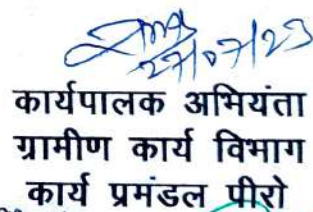 27/07/23
कार्यपालक अभियंता
ग्रामीण कार्य विभाग
कार्य प्रमंडल पीरो